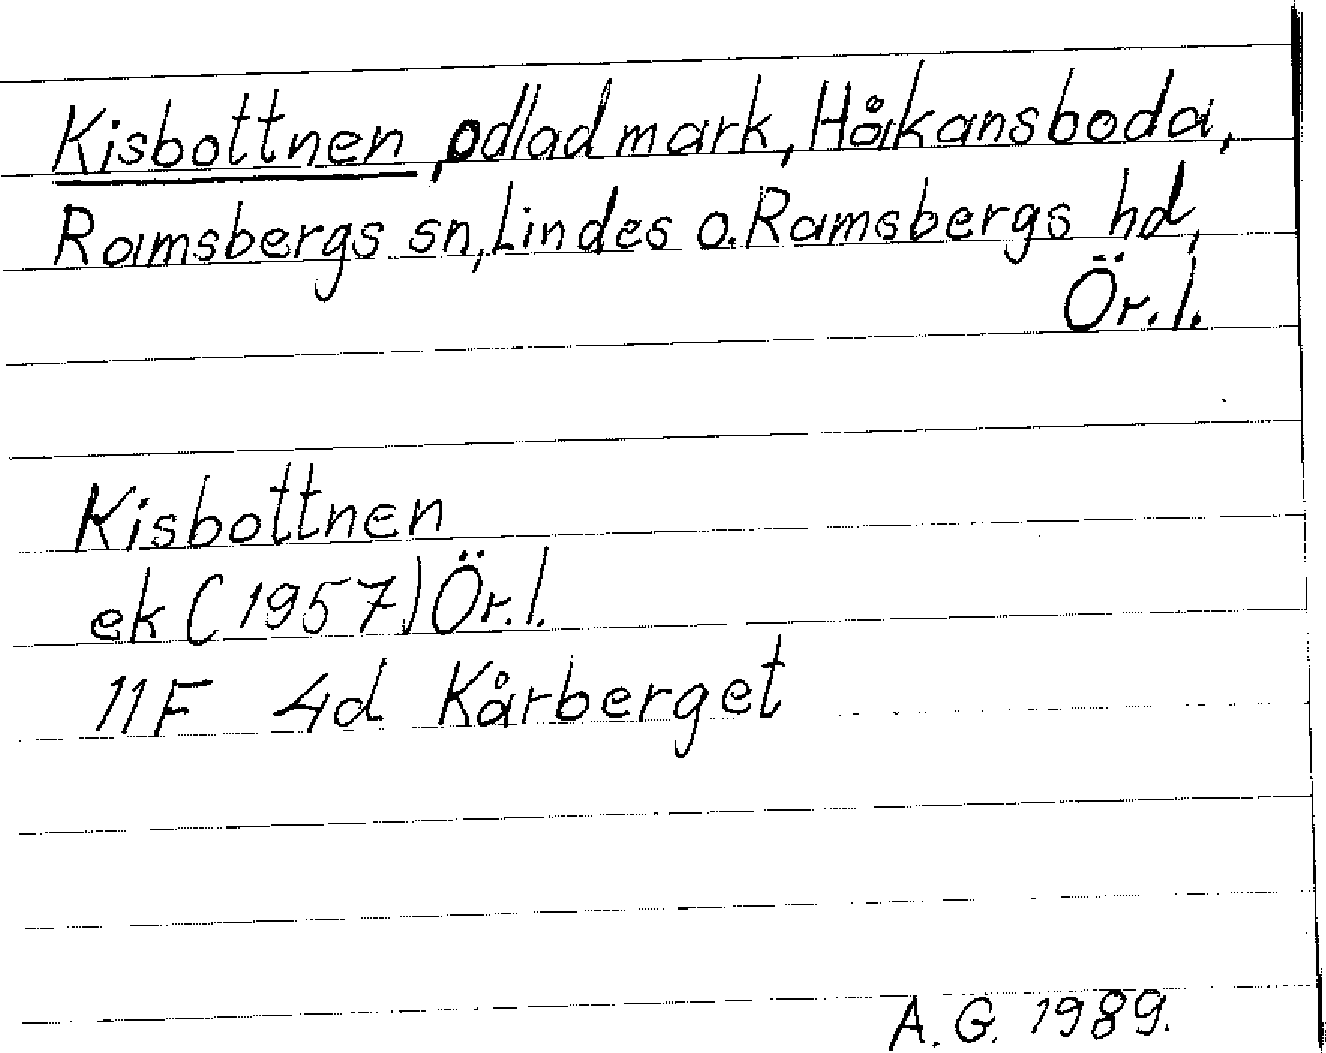 Kisbottnen, odlad mark, Håkansboda,
Ramsbergs sn, Lindes o. Ramsbergs hd,
Ör. l.
Kisbottnen
ek (1957) Ör. l.
11F 4d Kårberget
A. G. 1989.